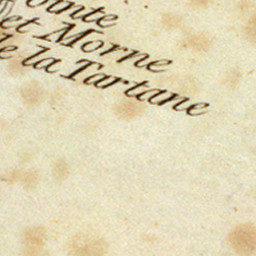 ointe
et Morne
de la Tartane